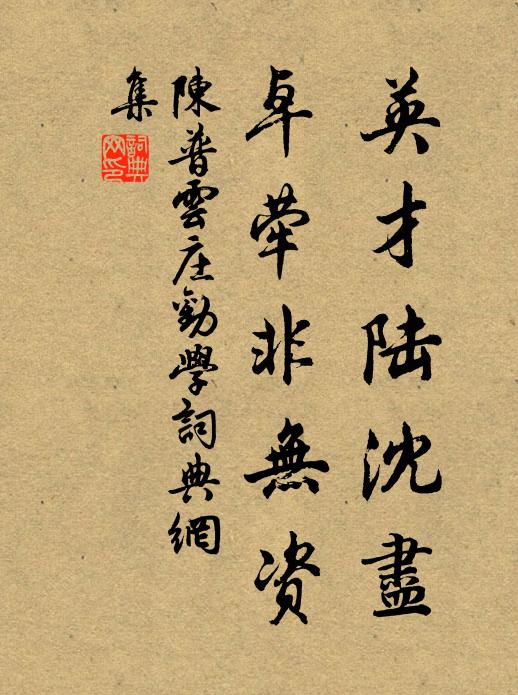 英才陆沈盡
卓犖非無资
陳普雲庄勸學詞典網
集
詞典网印